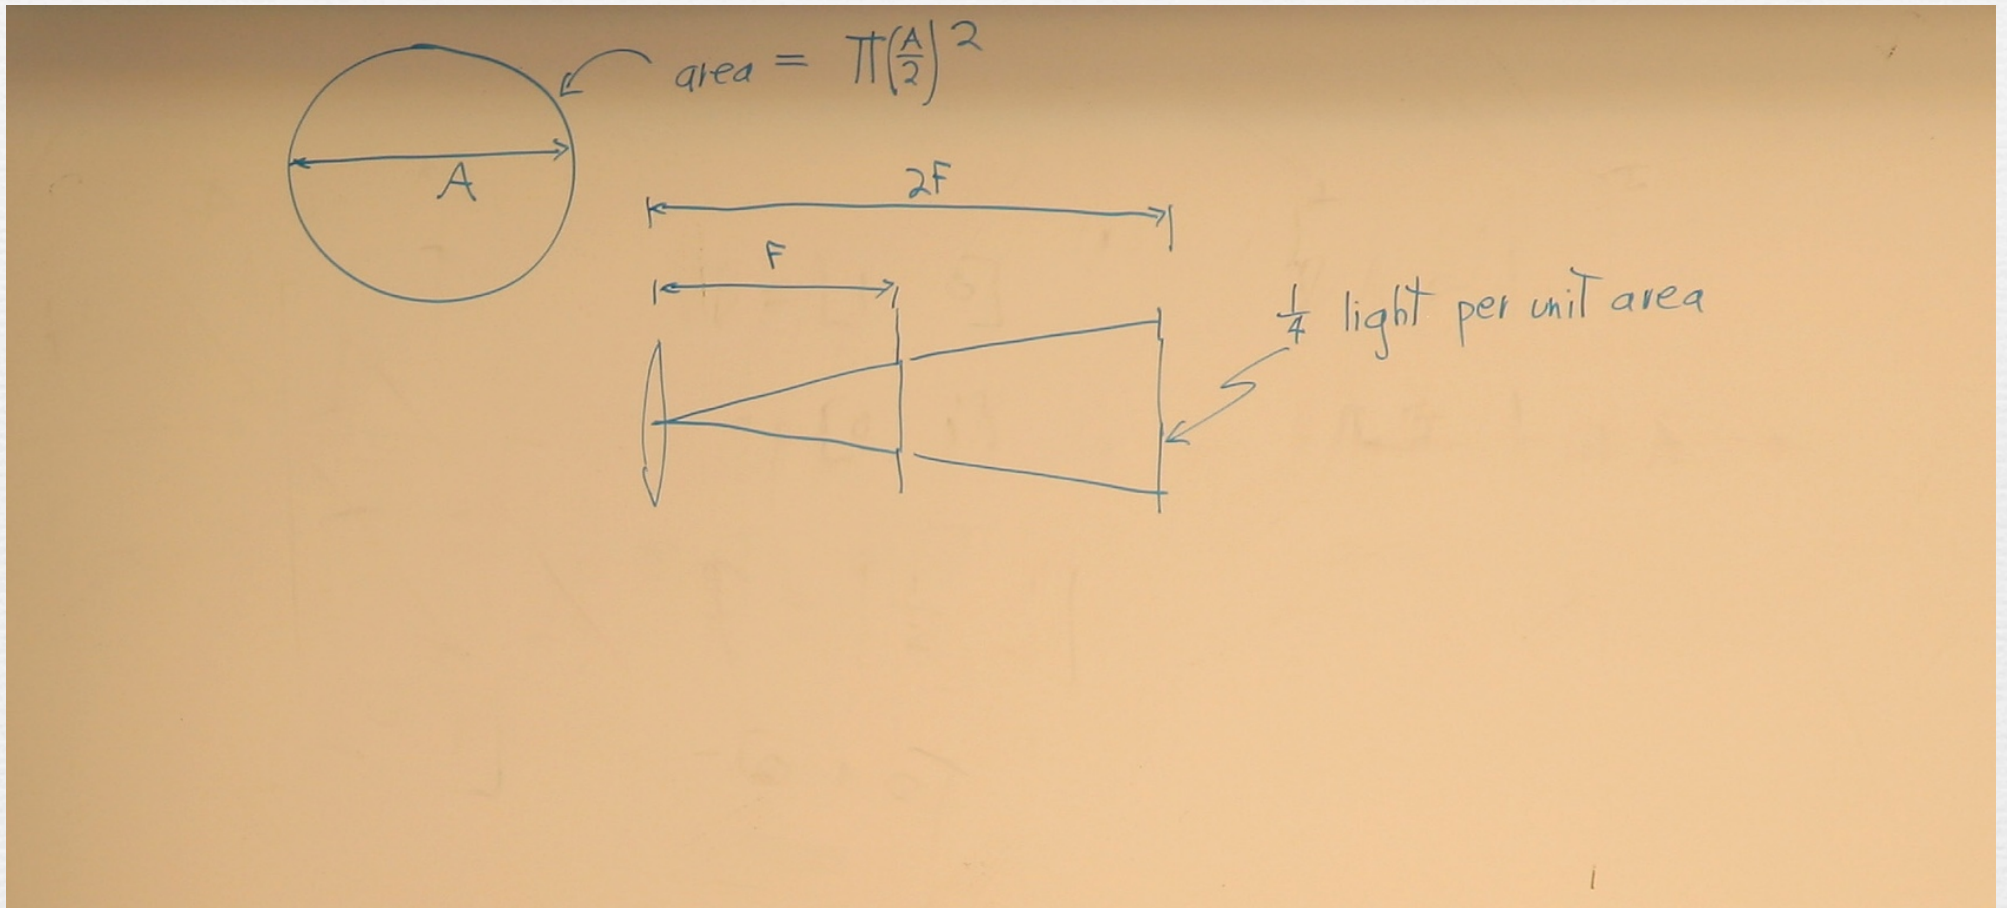 area = π(A/2)²
A
2F
F
1/4 light per unit area